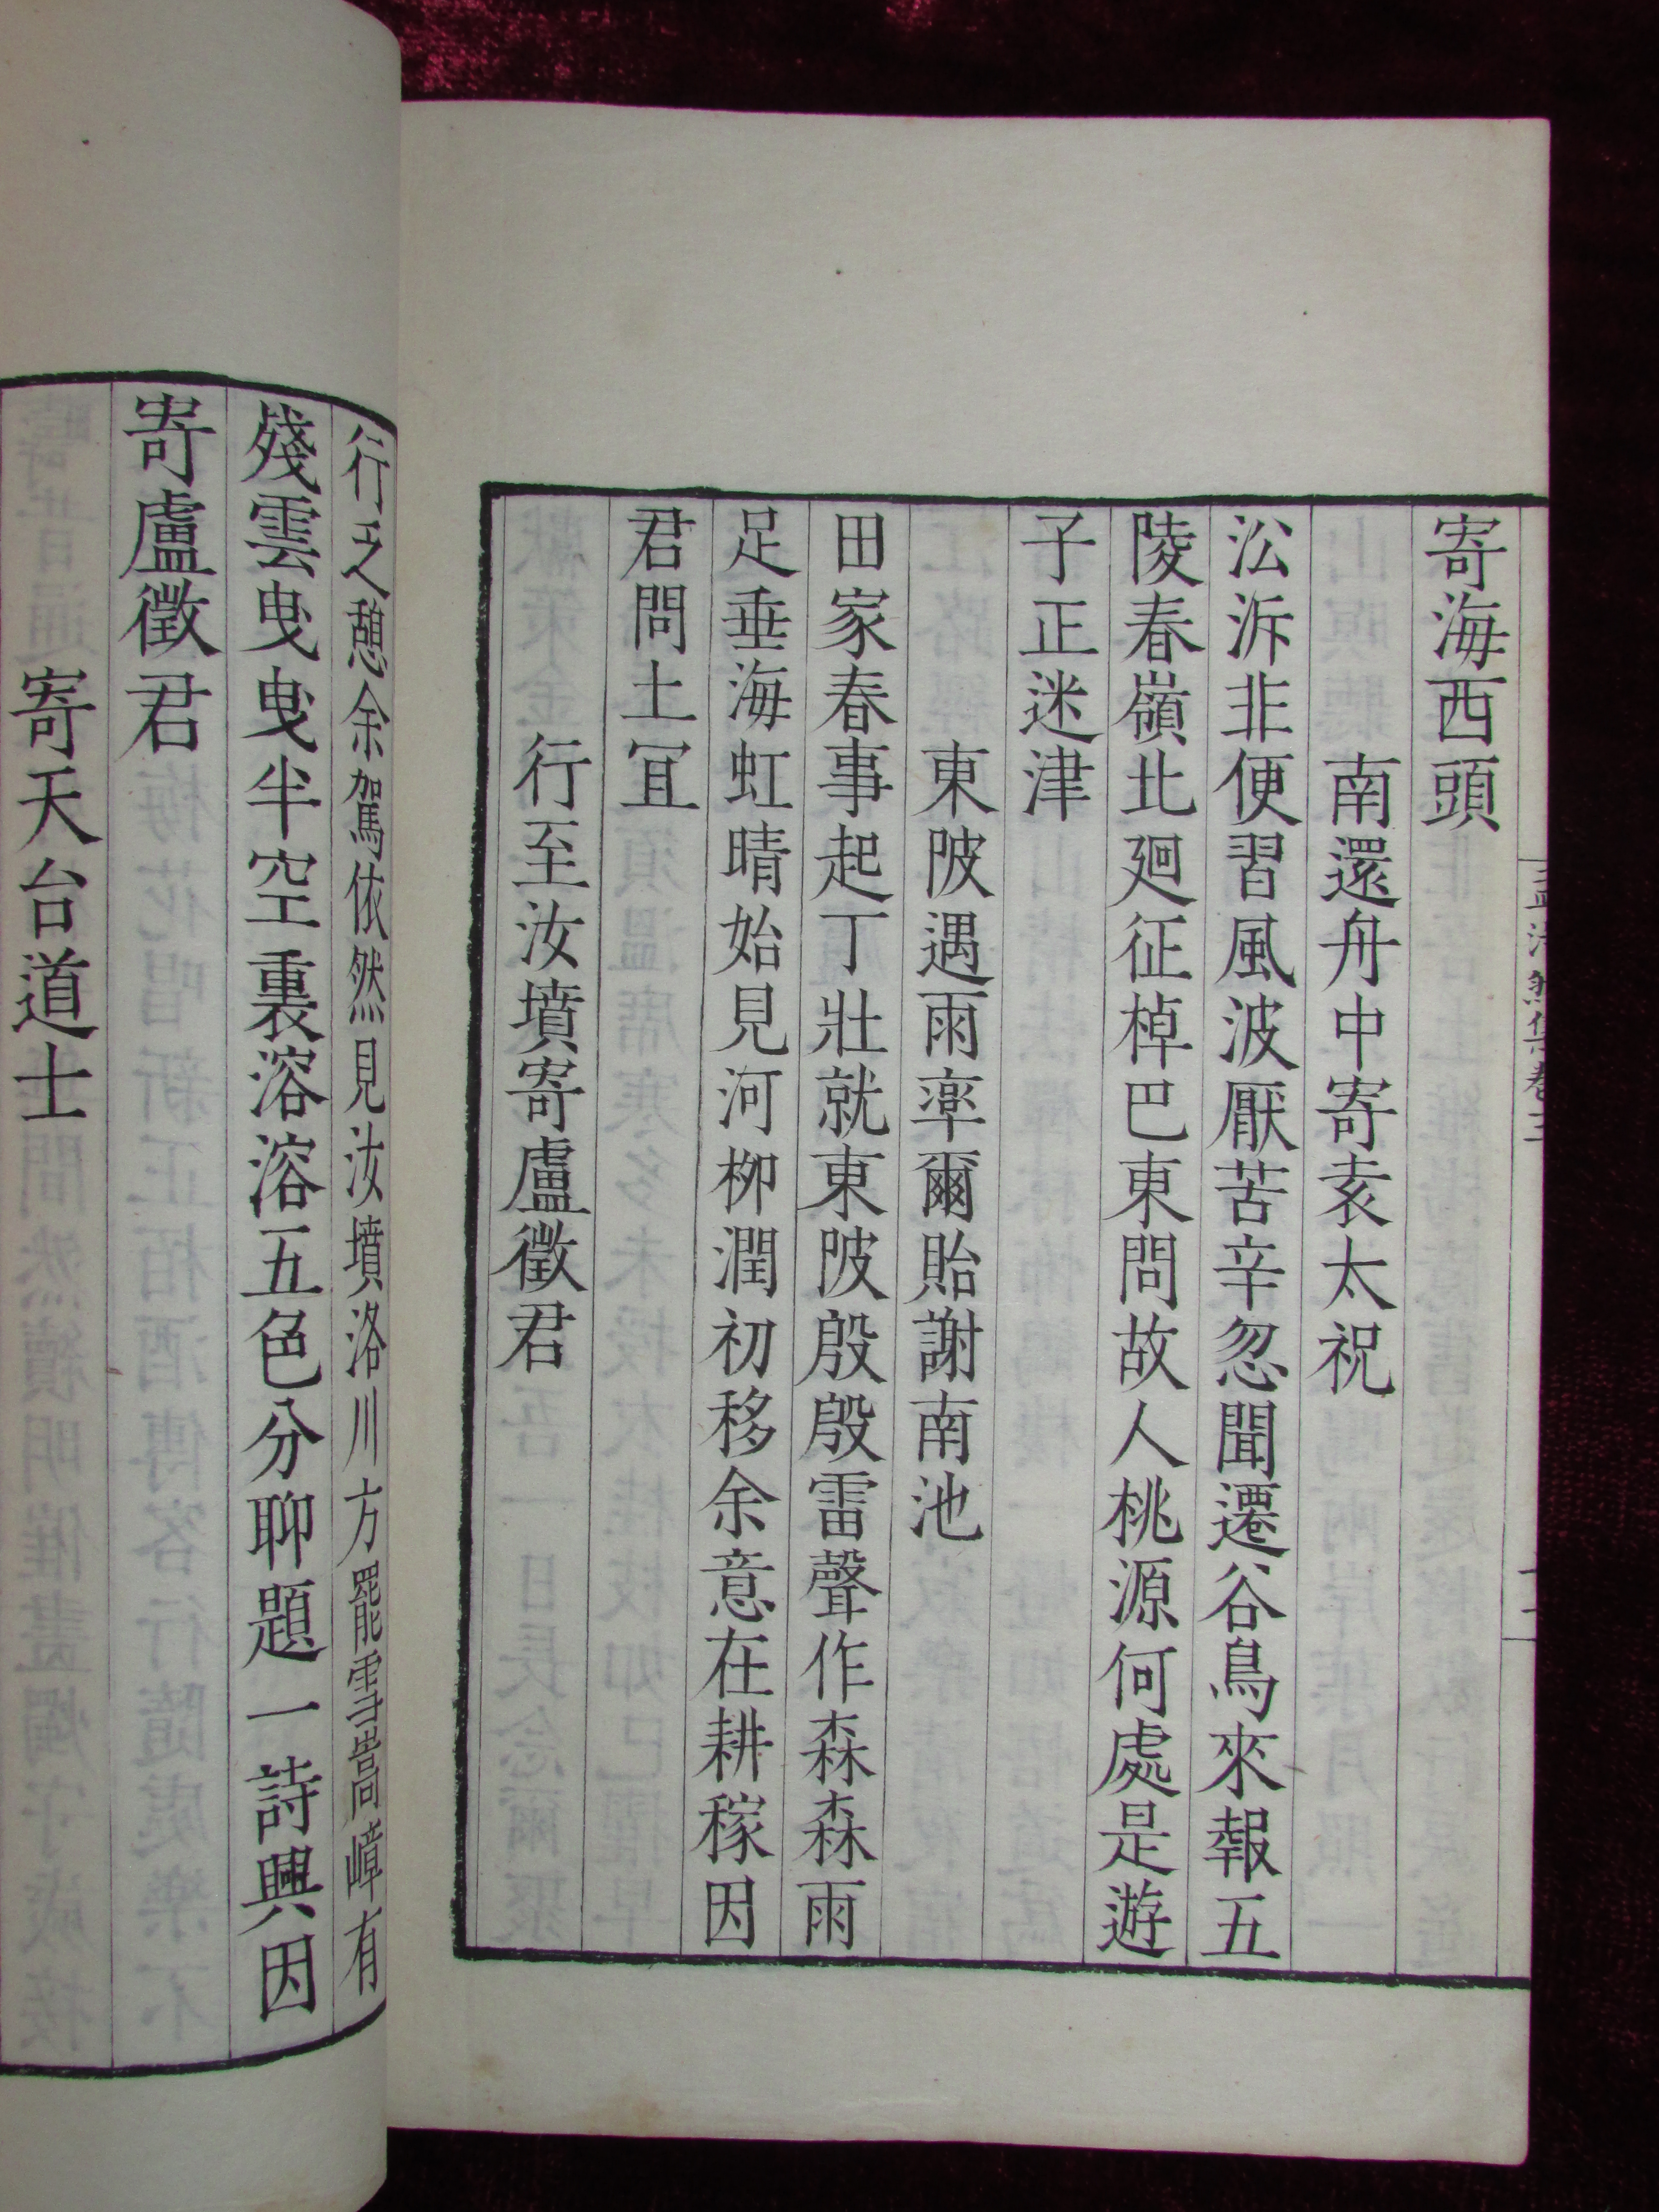 寄海西頭
南還舟中寄袁太祝
㳂泝非便習風波厭苦辛忽聞遷谷鳥來報五
陵春嶺北廻征棹巴東問故人桃源何處是遊
子正迷津
東陂遇雨率爾貽謝南池
田家春事起丁壯就東陂殷殷雷聲作森森雨
足垂海虹晴始見河柳潤初移余意在耕稼因
君問土冝
行至汝墳寄盧徵君
行乏憩余駕依然見汝墳洛川方罷雪嵩嶂有
殘雲曳曳半空裏溶溶五色分聊題一詩興因
寄盧徵君
寄天台道士